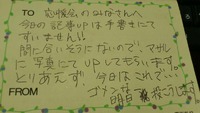 TO 応援会のみなさんへ
今日の記事UPは手書きにて
すいません!!
間に合いそうにないので、マサルに
写真にてUPしてもらいます。
とりあえず、今日はこれで…
FROM ゴメンなさい
明日